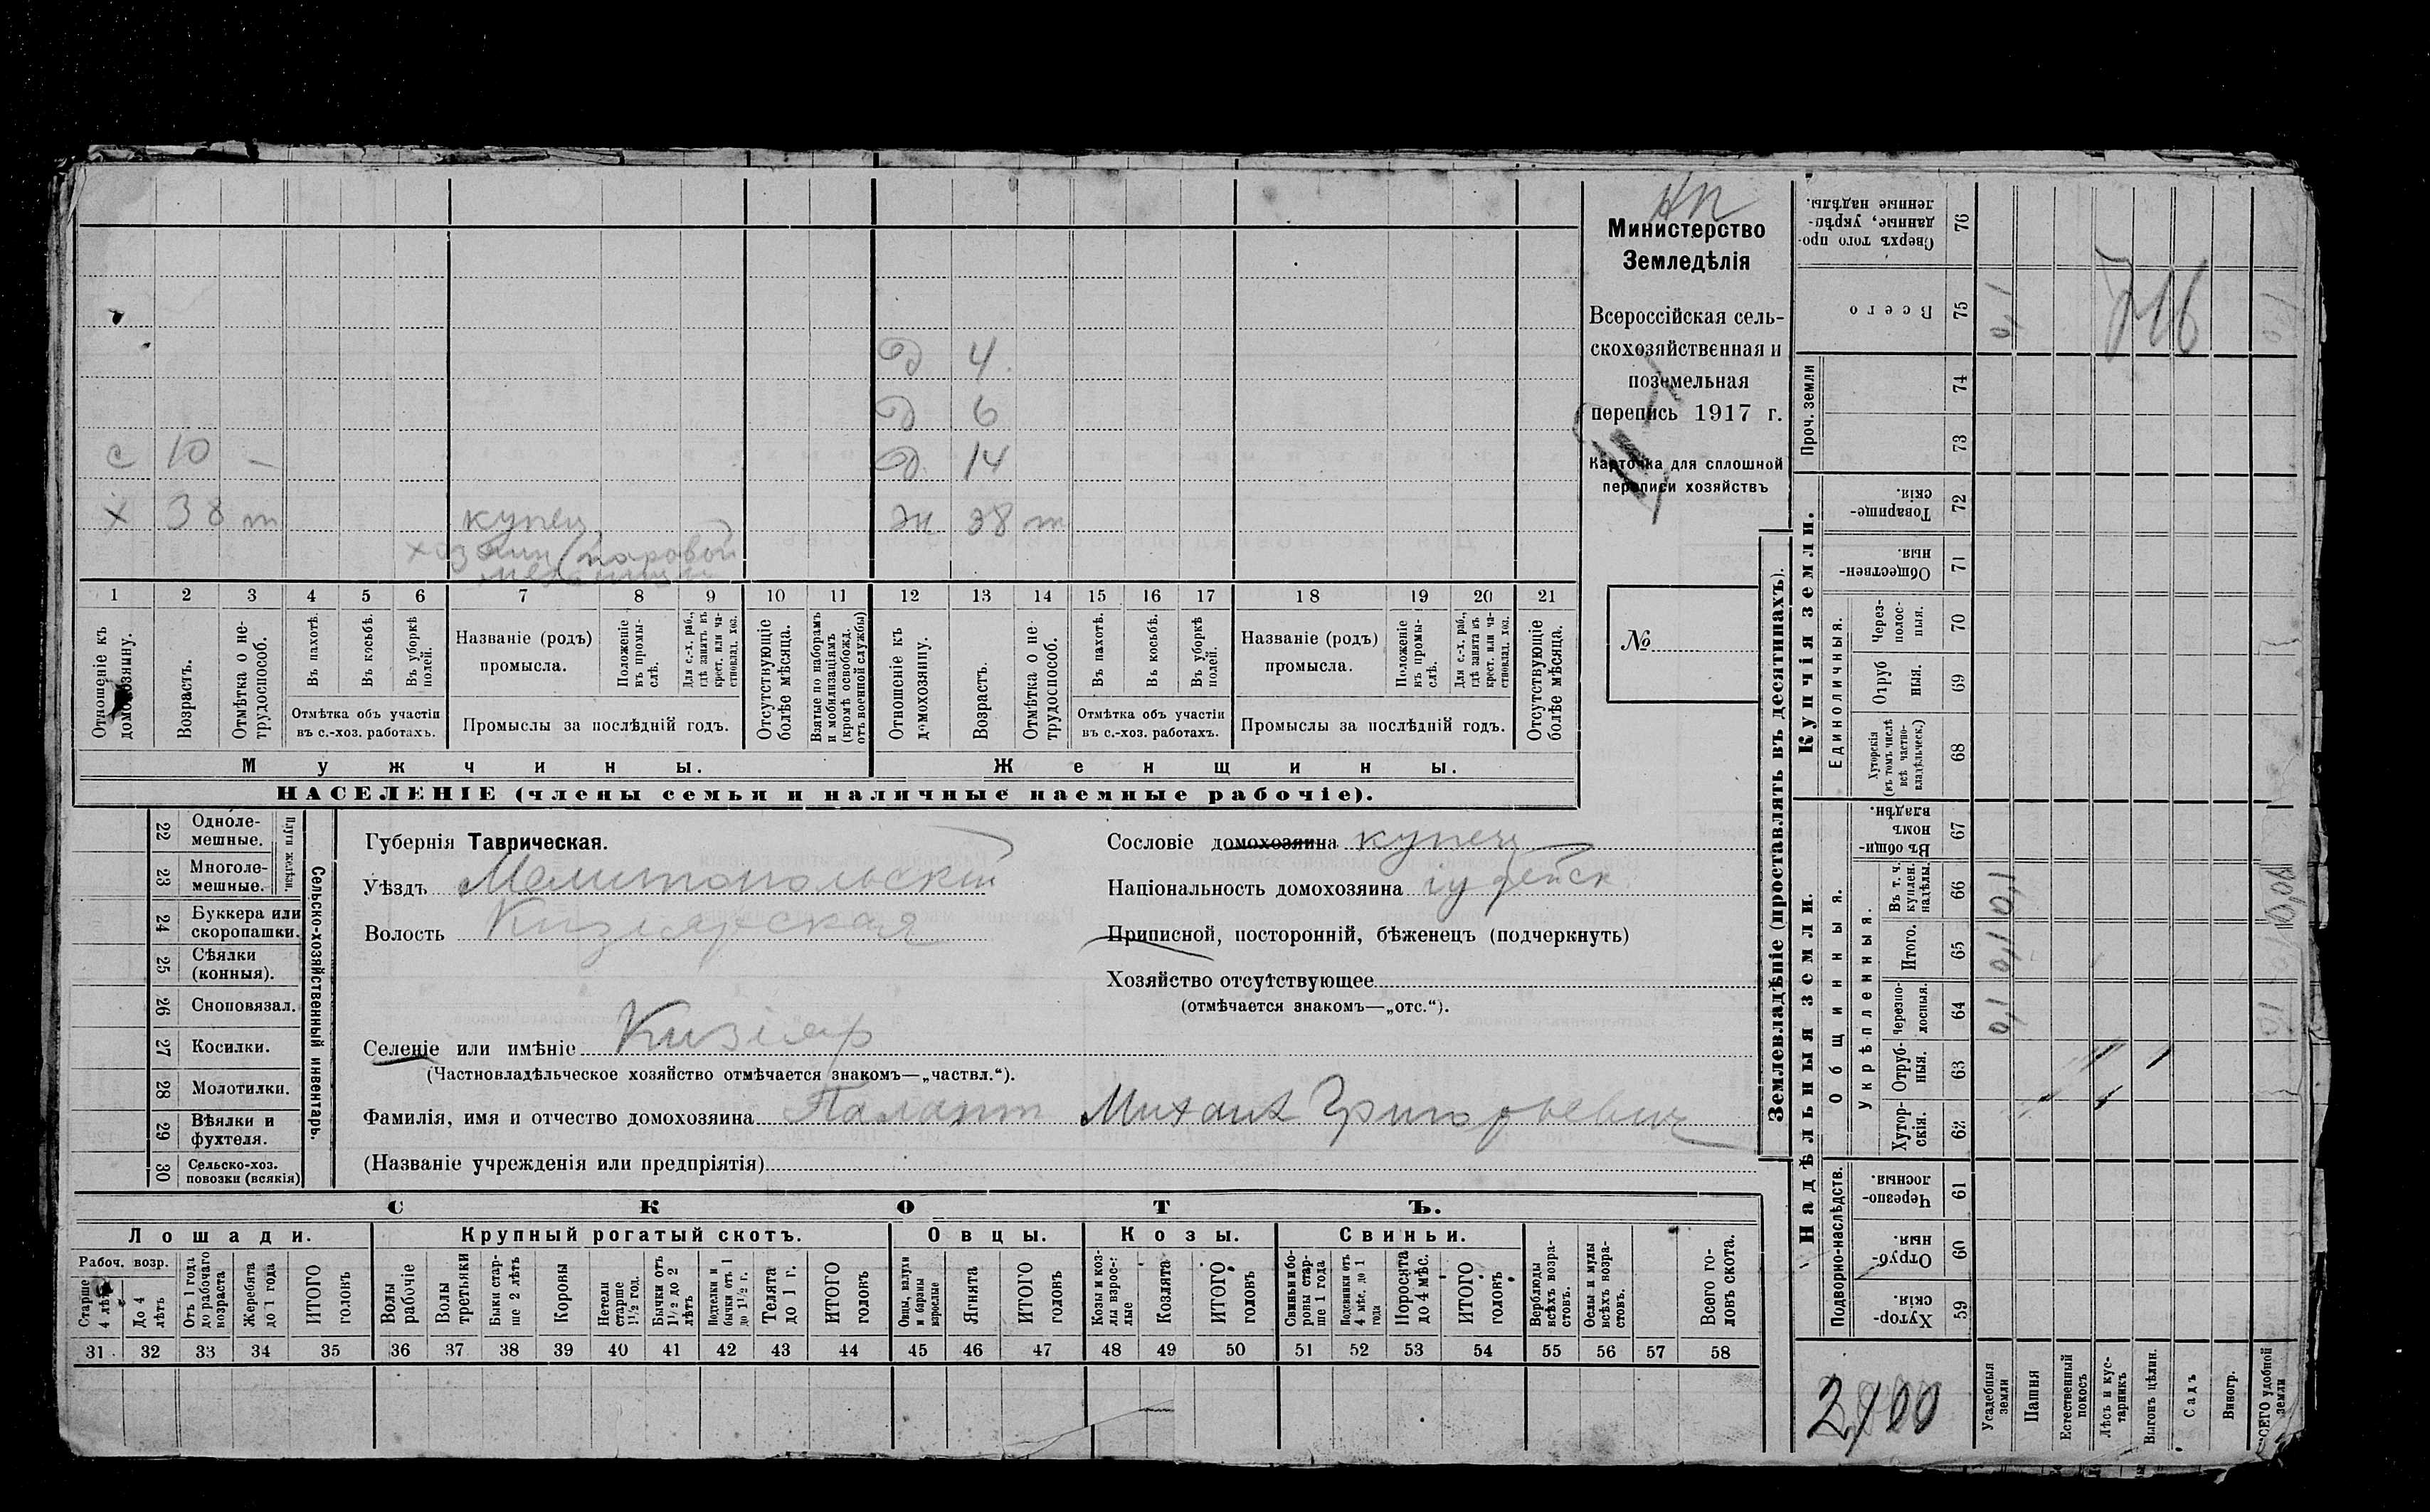 НП
Министерство
Земледѣлія
Всероссійская сель-
скохозяйственная и
поземельная
перепись 1917 г.
Карточка для сплошной
переписи хозяйствъ
№
д 4
д 6
с 10 — д 14
х 38 т купец ж 38 т
хозяин паровой
мельницы
1 2 3 4 5 6 7 8 9 10 11 12 13 14 15 16 17 18 19 20 21
Отношеніе къ домохозяину.
Возрастъ.
Отмѣтка о не-трудоспособ.
Въ пахотѣ.
Въ косьбѣ.
Въ уборкѣ полей.
Отмѣтка объ участіи
въ с.-хоз. работахъ.
Названіе (родъ)
промысла.
Положеніе въ промы-слѣ.
Для с.-х. раб., гдѣ занятъ въ крест. или ча-стновлад. хоз.
Промыслы за послѣдній годъ.
Отсутствующіе болѣе мѣсяца.
Взятые по наборамъ и мобилизаціямъ (кромѣ освобожд. отъ военной службы)
Отношеніе къ домохозяину.
Возрастъ.
Отмѣтка о не-трудоспособ.
Въ пахотѣ.
Въ косьбѣ.
Въ уборкѣ полей.
Отмѣтка объ участіи
въ с.-хоз. работахъ.
Названіе (родъ)
промысла.
Положеніе въ промы-слѣ.
Для с.-х. раб., гдѣ занята въ крест. или ча-стновлад. хоз.
Промыслы за послѣдній годъ.
Отсутствующіе болѣе мѣсяца.
Мужчины. Женщины.
НАСЕЛЕНІЕ (члены семьи и наличные наемные рабочіе).
22 Одноле-мешные.
23 Многоле-мешные.
Плуги желѣзн.
24 Буккера или скоропашки.
25 Сѣялки (конныя).
26 Сноповязал.
27 Косилки.
28 Молотилки.
29 Вѣялки и фухтеля.
30 Сельско-хоз. повозки (всякія)
Сельско-хозяйственный инвентарь.
Губернія Таврическая.
Уѣздъ Мелитопольскій
Волость Кизіярская
Селеніе или имѣніе Кизіяр
(Частновладѣльческое хозяйство отмѣчается знакомъ—„частвл.“).
Фамилія, имя и отчество домохозяина Палант Михаил Григорьевич
(Названіе учрежденія или предпріятія)
Сословіе домохозяина купец
Національность домохозяина іудейск
Приписной, посторонній, бѣженецъ (подчеркнуть)
Хозяйство отсутствующее
(отмѣчается знакомъ—„отс.“).
СКОТЪ.
Лошади. Крупный рогатый скотъ. Овцы. Козы. Свиньи.
Рабоч. возр.
Старше 4 лѣтъ
До 4 лѣтъ
Отъ 1 года до рабочаго возраста
Жеребята до 1 года
ИТОГО головъ
Волы рабочіе
Волы третьяки
Быки стар-ше 2 лѣтъ
Коровы
Нетели старше 1½ год.
Бычки отъ 1½ до 2 лѣтъ
Подтелки и бычки отъ 1 до 1½ г.
Телята до 1 г.
ИТОГО головъ
Овцы, валухи и бараны взрослые
Ягнята
ИТОГО головъ
Козы и коз-лы взрос-лые
Козлята
ИТОГО головъ
Свиньи и бо-ровы стар-ше 1 года
Подсвинки отъ 4 мѣс. до 1 года
Поросята до 4 мѣс.
ИТОГО головъ
Верблюды всѣхъ возра-стовъ.
Ослы и мулы всѣхъ возра-стовъ.
Всего го-ловъ скота.
31 32 33 34 35 36 37 38 39 40 41 42 43 44 45 46 47 48 49 50 51 52 53 54 55 56 57 58
Землевладѣніе (проставлять въ десятинахъ).
Надѣльныя земли.
Купчія земли.
Проч. земли
Подворно-наслѣдств.
Общинныя.
Укрѣпленныя.
Единоличныя.
Хутор-скія 59
Отруб-ныя 60
Черезпо-лосныя. 61
Хутор-скія. 62
Отруб-ныя. 63
Черезпо-лосныя. 64
Итого. 65
Въ т. ч. куплен. надѣлы. 66
Въ общи-номъ владѣн. 67
Хуторскія (въ томъ числѣ всѣ частно-владѣльческ.) 68
Отруб ныя. 69
Через-полос-ныя. 70
Обществен-ныя. 71
Товарище-скія. 72
73
74
Всего 75
Сверхъ того про-данные, укрѣп-ленные надѣлы. 76
Усадебныя земли
Пашня
Естественный покосъ
Лѣсъ и кус-тарникъ
Выгонъ цѣлин.
Садъ
Виногр.
ВСЕГО удобной земли
716
2100